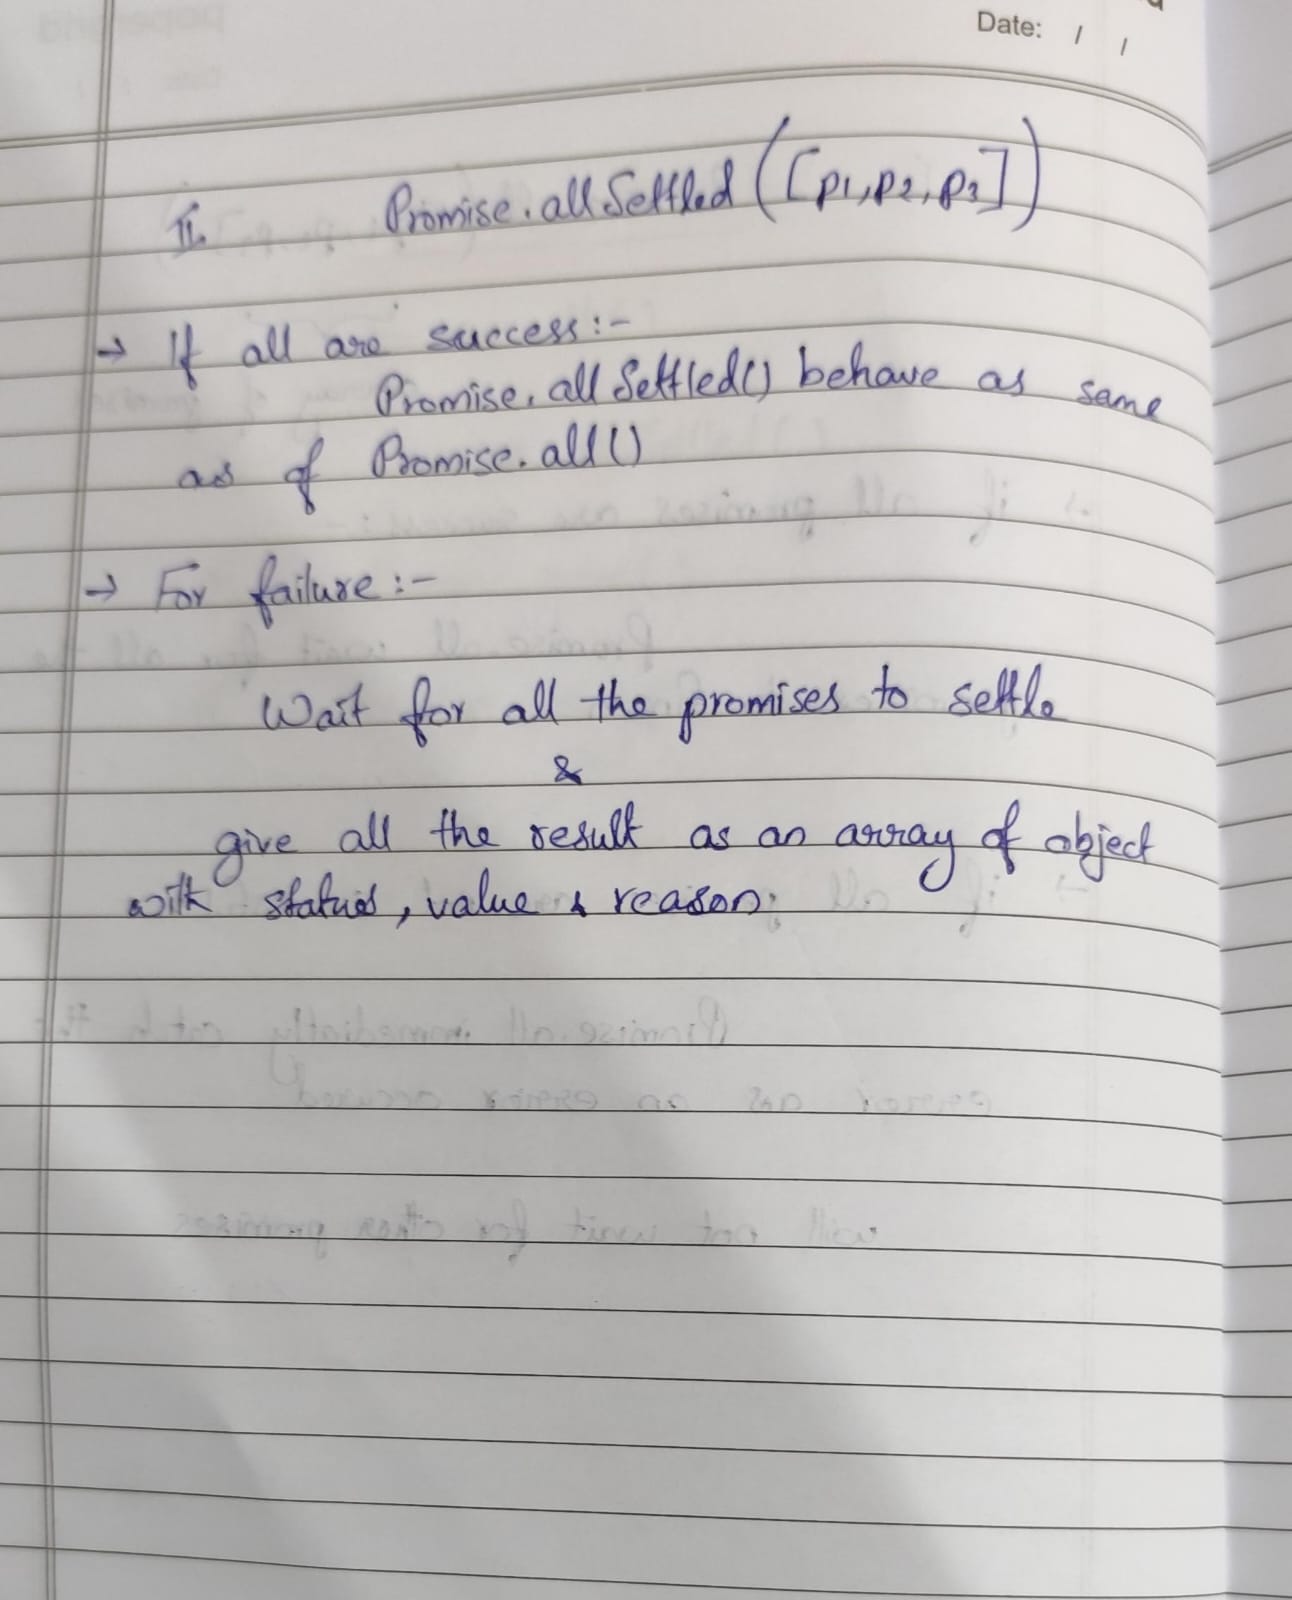 Date: / /
II. Promise.allSettled([p1,p2,p3])
→ If all are success:-
Promise.allSettled() behave as same
as of Promise.all()
→ For failure:-
Wait for all the promises to settle
&
give all the result as an array of object
with status, value & reason.